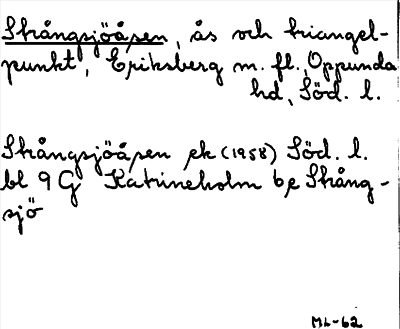 Strångsjöåsen, ås och triangel-
punkt, Eriksberg m. fl., Oppunda
hd, Söd. l.
Strångsjöåsen ek (1958) Söd. l.
bl 9 G Katrineholm be Strång-
sjö
ML-62